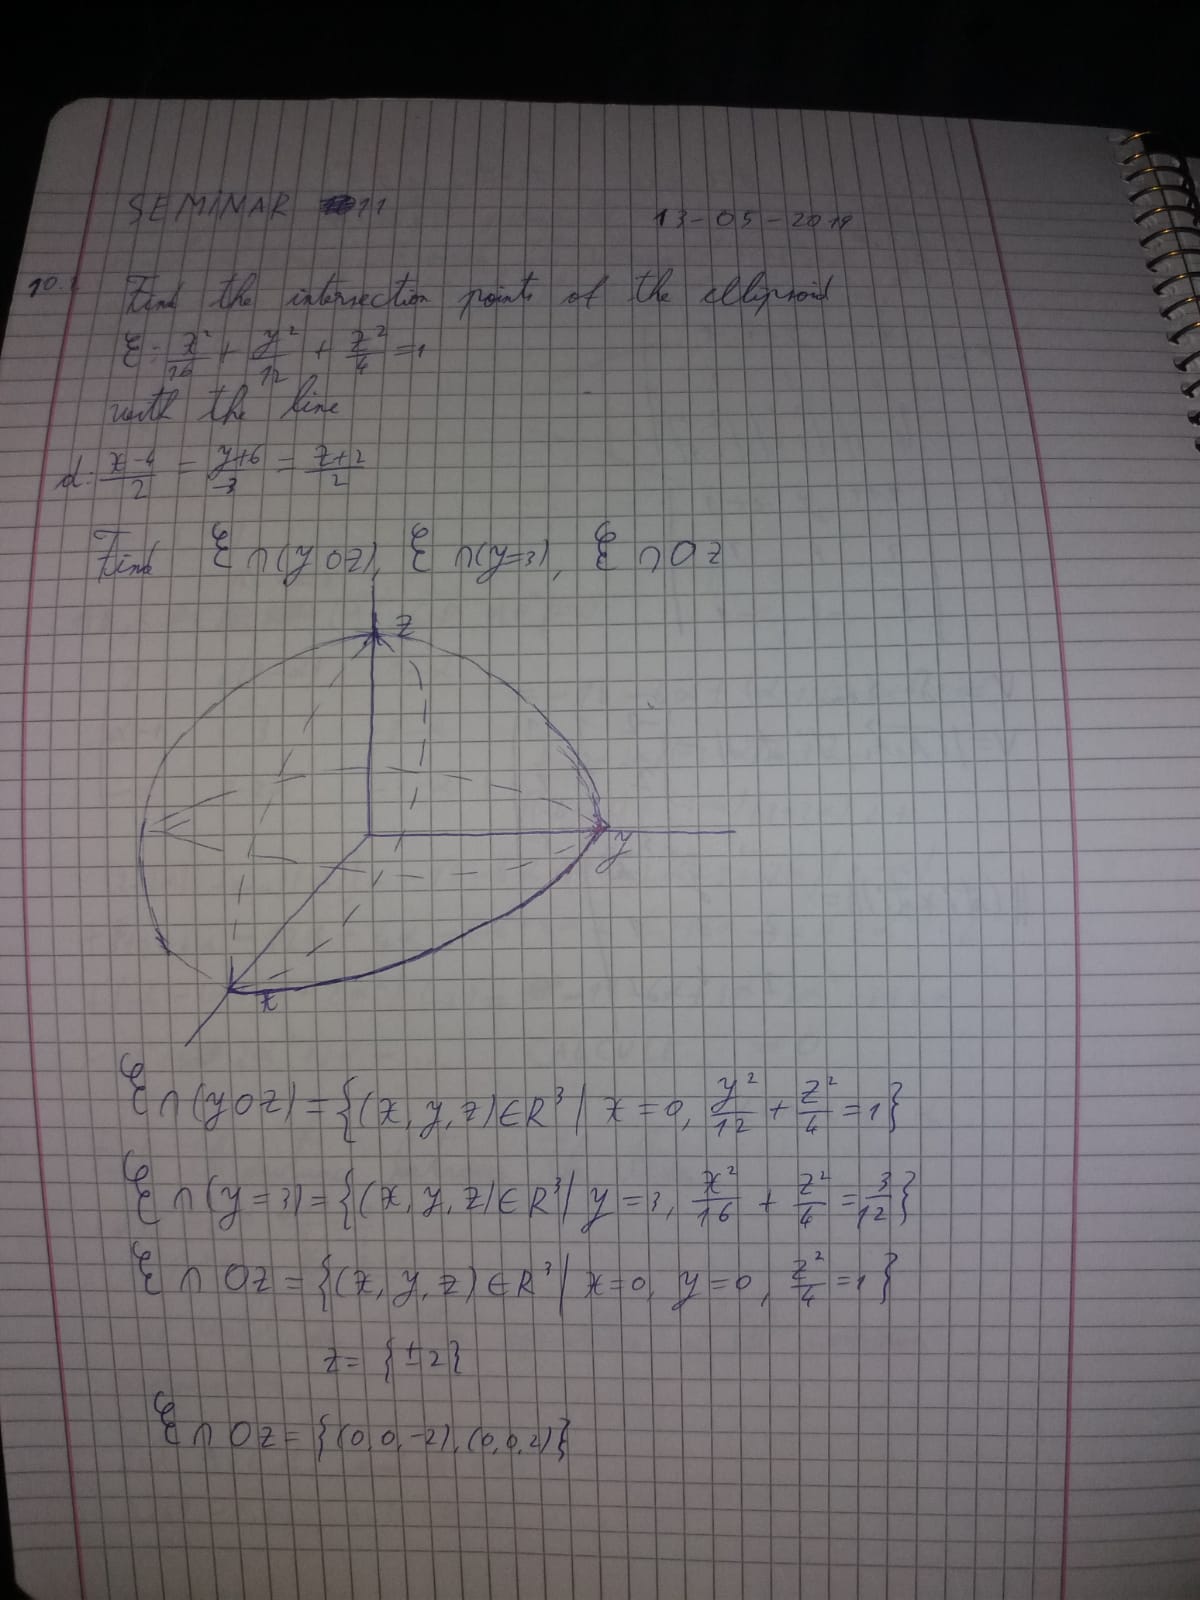 SEMINAR 11
13-05-2019
10.
Find the intersection points of the ellipsoid
ℰ: x²/16 + y²/12 + z²/4 = 1
with the line
d: x-4/2 = y+6/-3 = z+2/2
Find ℰ ∩ (yOz), ℰ ∩ (y=3), ℰ ∩ Oz
z
y
x
ℰ ∩ (yOz) = {(x, y, z) ∈ R³ | x = 0, y²/12 + z²/4 = 1}
ℰ ∩ (y = 3) = {(x, y, z) ∈ R³ | y = 3, x²/16 + z²/4 = 3/12}
ℰ ∩ Oz = {(x, y, z) ∈ R³ | x = 0, y = 0, z²/4 = 1}
z = {±2}
ℰ ∩ Oz = {(0, 0, -2), (0, 0, 2)}